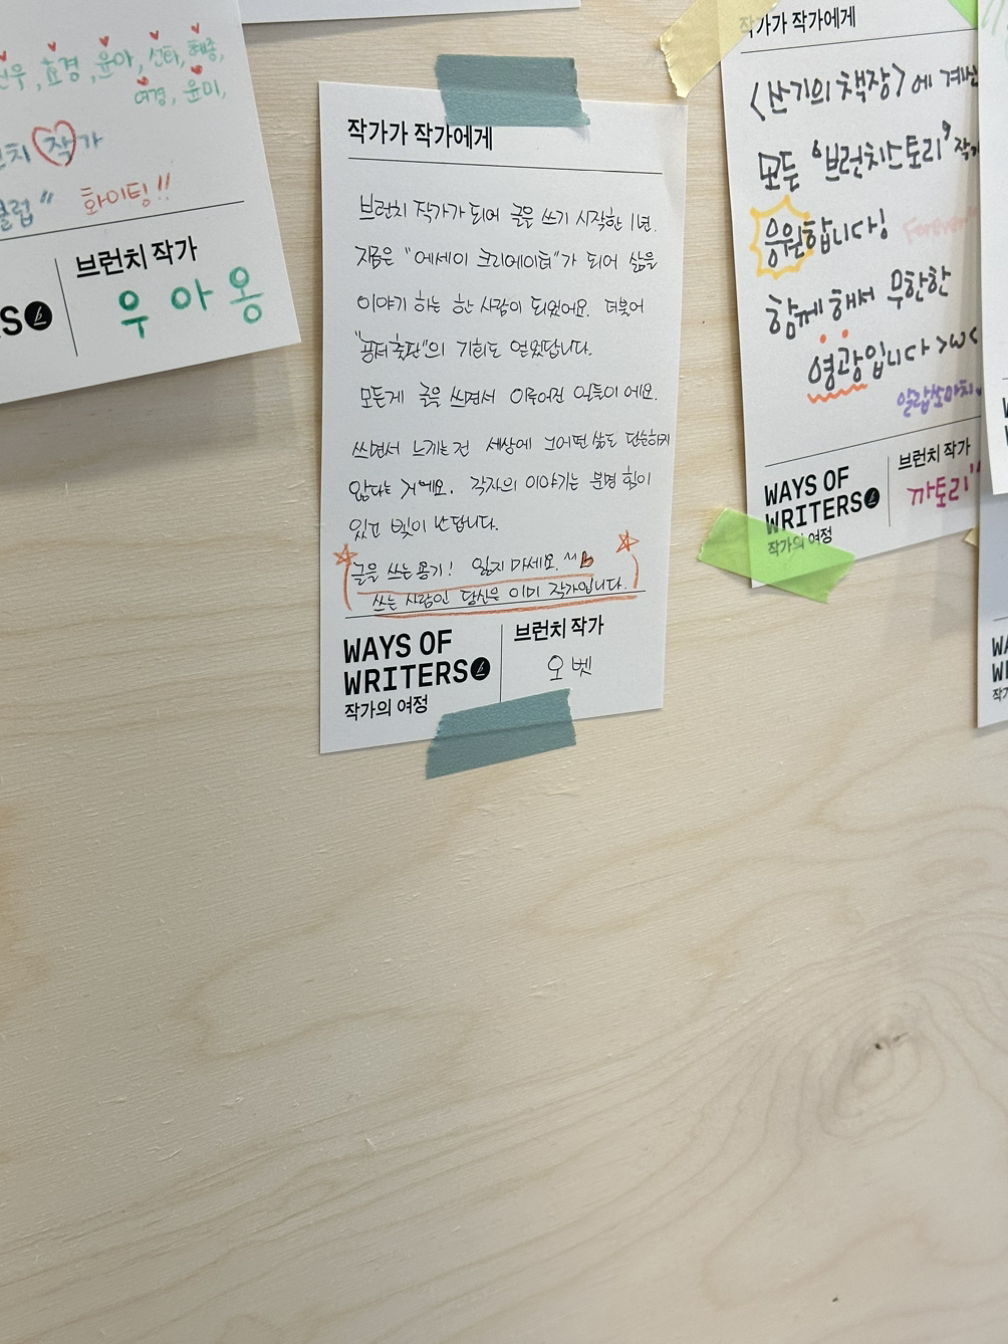 효경, 윤아, 신타, 혜종,
여경, 윤미,
작가
화이팅!!
브런치 작가
우아옹
작가가 작가에게
브런치 작가가 되어 글을 쓰기 시작한 1년.
지금은 "에세이 크리에이터"가 되어 삶을
이야기 하는 한 사람이 되었어요. 더불어
"공저출판"의 기회도 얻었답니다.
모든게 글을 쓰면서 이루어진 일들이에요.
쓰면서 느끼는건 세상에 그어떤 삶도 단순하지
않다는 거예요. 각자의 이야기는 분명 힘이
있고 빛이 난답니다.
글을 쓰는 용기! 잃지 마세요.~
쓰는 사람인 당신은 이미 작가입니다.
WAYS OF
WRITERS
작가의 여정
브런치 작가
오벳
작가가 작가에게
<산기의 책장>에 계신
모든 "브런치스토리"
응원합니다!
Forever
함께 해서 무한한
영광입니다 >w<
WAYS OF
WRITERS
작가의 여정
브런치 작가
까토리